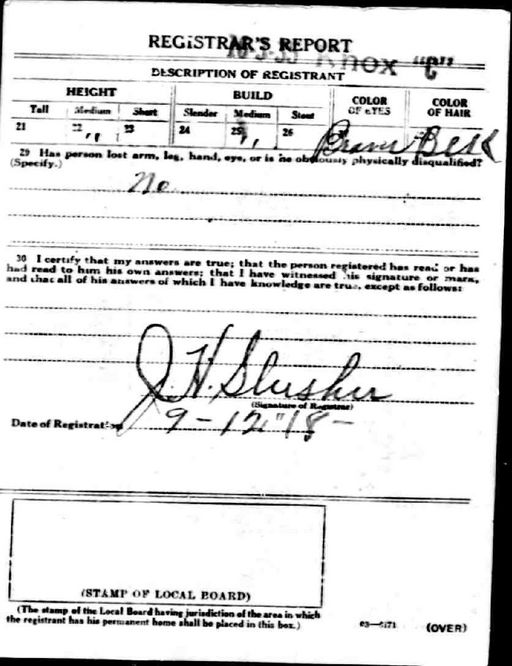 REGISTRAR'S REPORT
Knox "C"
DESCRIPTION OF REGISTRANT
HEIGHT BUILD COLOR OF EYES COLOR OF HAIR
Tall Medium Short Slender Medium Stout
21 22 ,, 23 24 25 ,, 26 Brown Blck
29 Has person lost arm, leg, hand, eye, or is he obviously physically disqualified?
(Specify.)
No
30 I certify that my answers are true; that the person registered has read or has
had read to him his own answers; that I have witnessed his signature or mark,
and that all of his answers of which I have knowledge are true, except as follows:
J. H. Slusher
(Signature of Registrar)
Date of Registration 9-12-18-
(STAMP OF LOCAL BOARD)
(The stamp of the Local Board having jurisdiction of the area in which
the registrant has his permanent home shall be placed in this box.)
03—6171 (OVER)